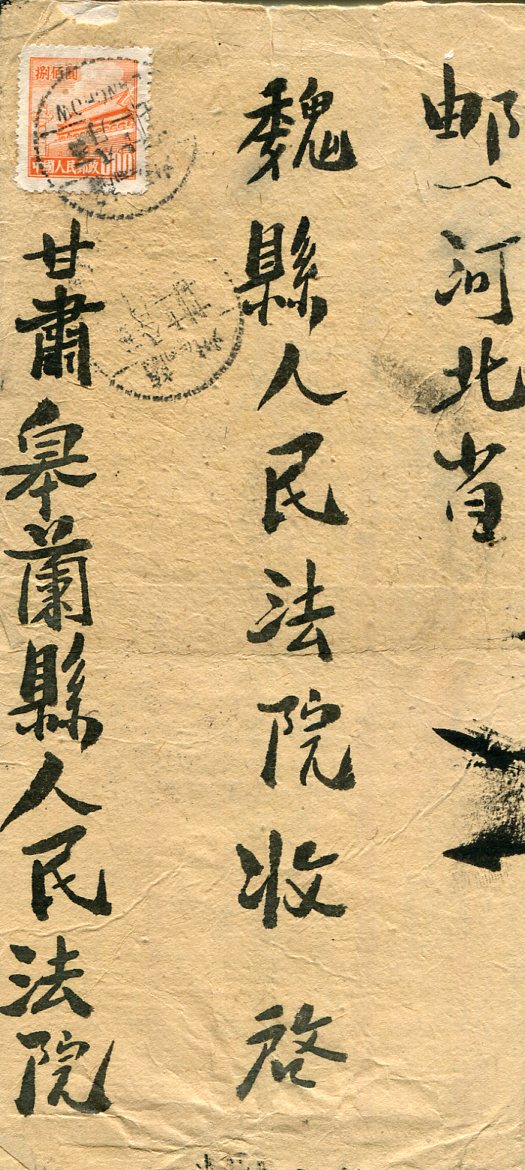 邮河北省
魏縣人民法院收啓
甘肅皋蘭縣人民法院
捌佰圓
中國人民郵政
800